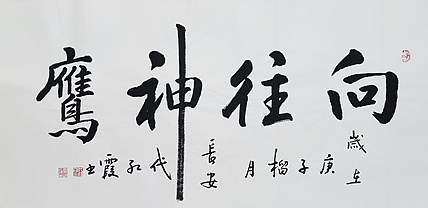 向往神鹰
岁在庚子榴月长安代红霞书